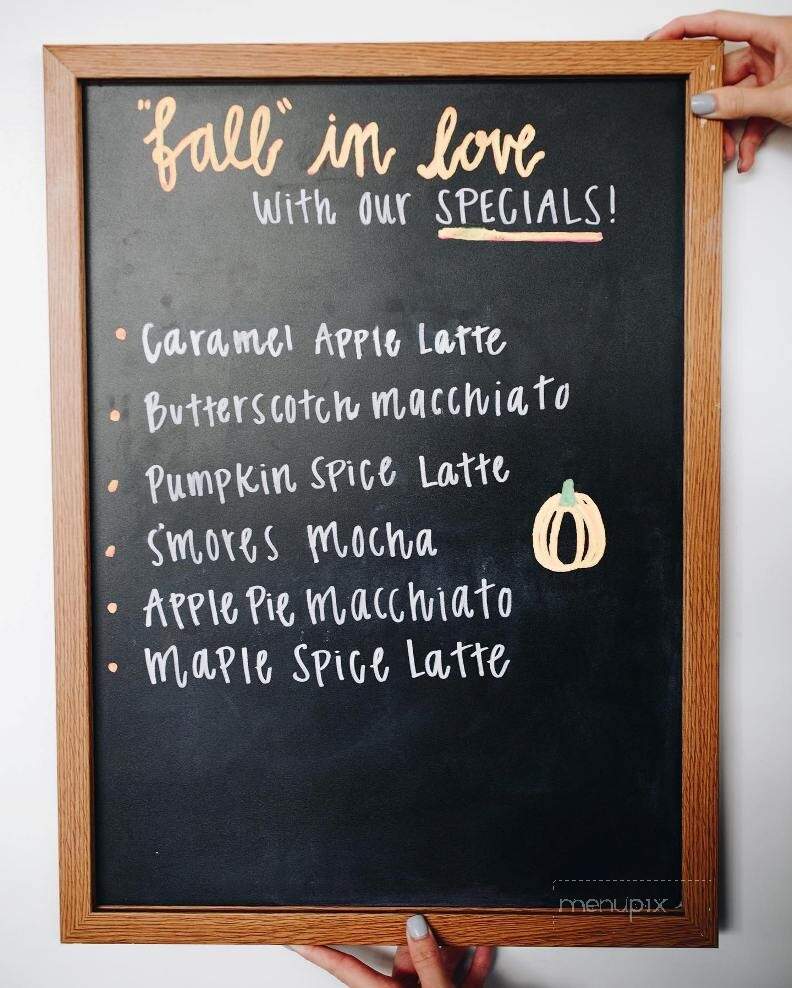 "fall" in love
with our SPECIALS!
• Caramel Apple Latte
• Butterscotch Macchiato
• Pumpkin Spice Latte
• S'mores Mocha
• Apple Pie Macchiato
• Maple Spice Latte
menupix